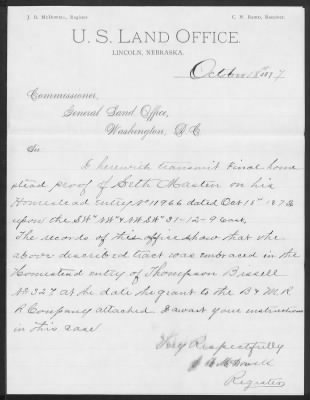 J. B. McDowell, Register
C. W. Receiver.
U. S. LAND OFFICE.
LINCOLN, NEBRASKA.
October 18th 1877
Commissioner,
General Land Office,
Washington, D.C
Sir
I herewith transmit Final home
stead proof of Seth Masten on his
Homestead entry No 1966 dated Oct 15" 187
upon the NW & SW 31-12-9 East,
The records of this office show that the
above described tract was embraced in the
Homestead entry of Thompson Bissell
No 327 at the date the grant to the B & M R
R Company attached. I await your instructions
in this case
Very Respectfully
J B McDowell
Register